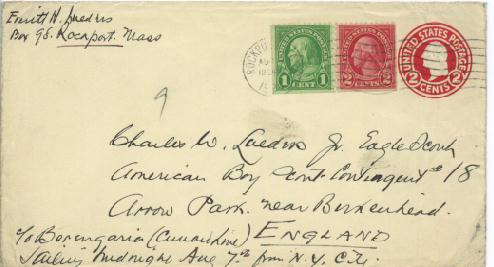 Emritt H. Lueders
Box 98. Rockport. Mass
ROCKPO
UNITED STATES POSTAGE
1 CENT 1
2 CENTS 2
UNITED STATES POSTAGE
2 CENTS 2
9
Charles W. Lueders Jr. Eagle Scout
American Boy Scout Contingent # 18
Arrow Park. near Birkenhead.
ENGLAND
c/o Berengaria (Cunard Line)
Sailing Midnight Aug 7th from N.Y. City.